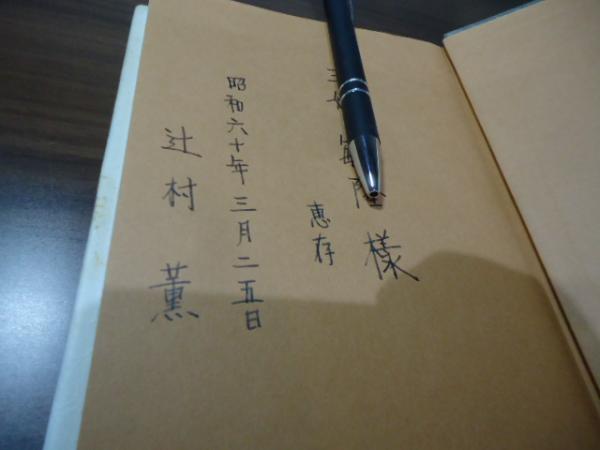 様
惠存
昭和六十年三月二五日
辻村 薫